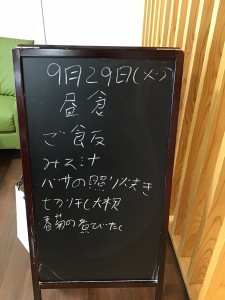 9月29日(火)
昼食
ご飯
みそ汁
バサの照り焼き
切り干し大根
春菊の煮びたし